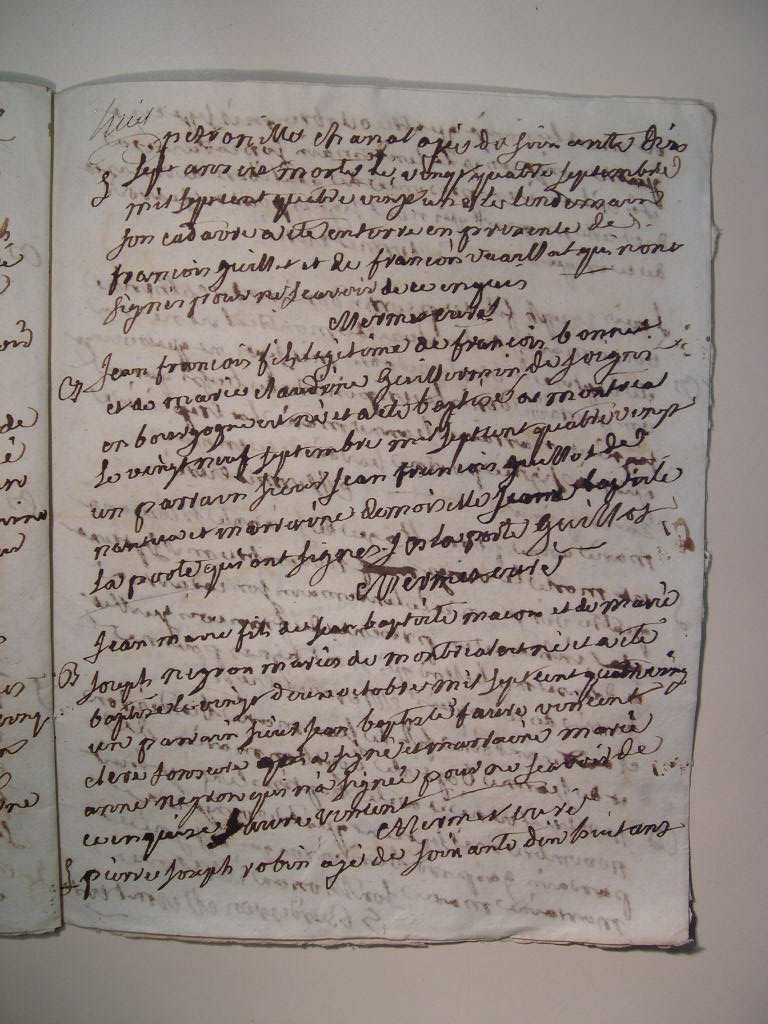 huit
petronille chanal agée de soixante dix
S sept ans est morte le vingt quatre septembre
mil sept cent quatre vingt un et le lendemain
son cadavre a eté enterré en presente de
françois guillot et de françois vuaillat qui n'ont
signés pour ne sçavoir de ce enquis
Mermet curé
B Jean françois fils legitime de françois bonnet
et de marie claudine guillermin de
en bourgogne est né et a eté baptisé a montreal
le vingt neuf septembre mil sept cent quatre vingt
un parrain sieur Jean françois guillot de
nantua et marreine demoiselle Jeanne baptiste
la porte qui ont signés. Jn laporte Guillot
Mermet curé
B Jean marie fils de Jean baptiste macon et de marie
Joseph negron mariés de montreal est né et a eté
baptisé le vingt deux octobre mil sept cent quatre vingt
un parrain sieur Jean baptiste favre vincent
clerc tonsuré qui a signé et marraine marie
anne negron qui n'a signée pour ne scavoir de
ce enquise favre vincent Mermet curé
S pierre Joseph robin agé de soixante dix huit ans